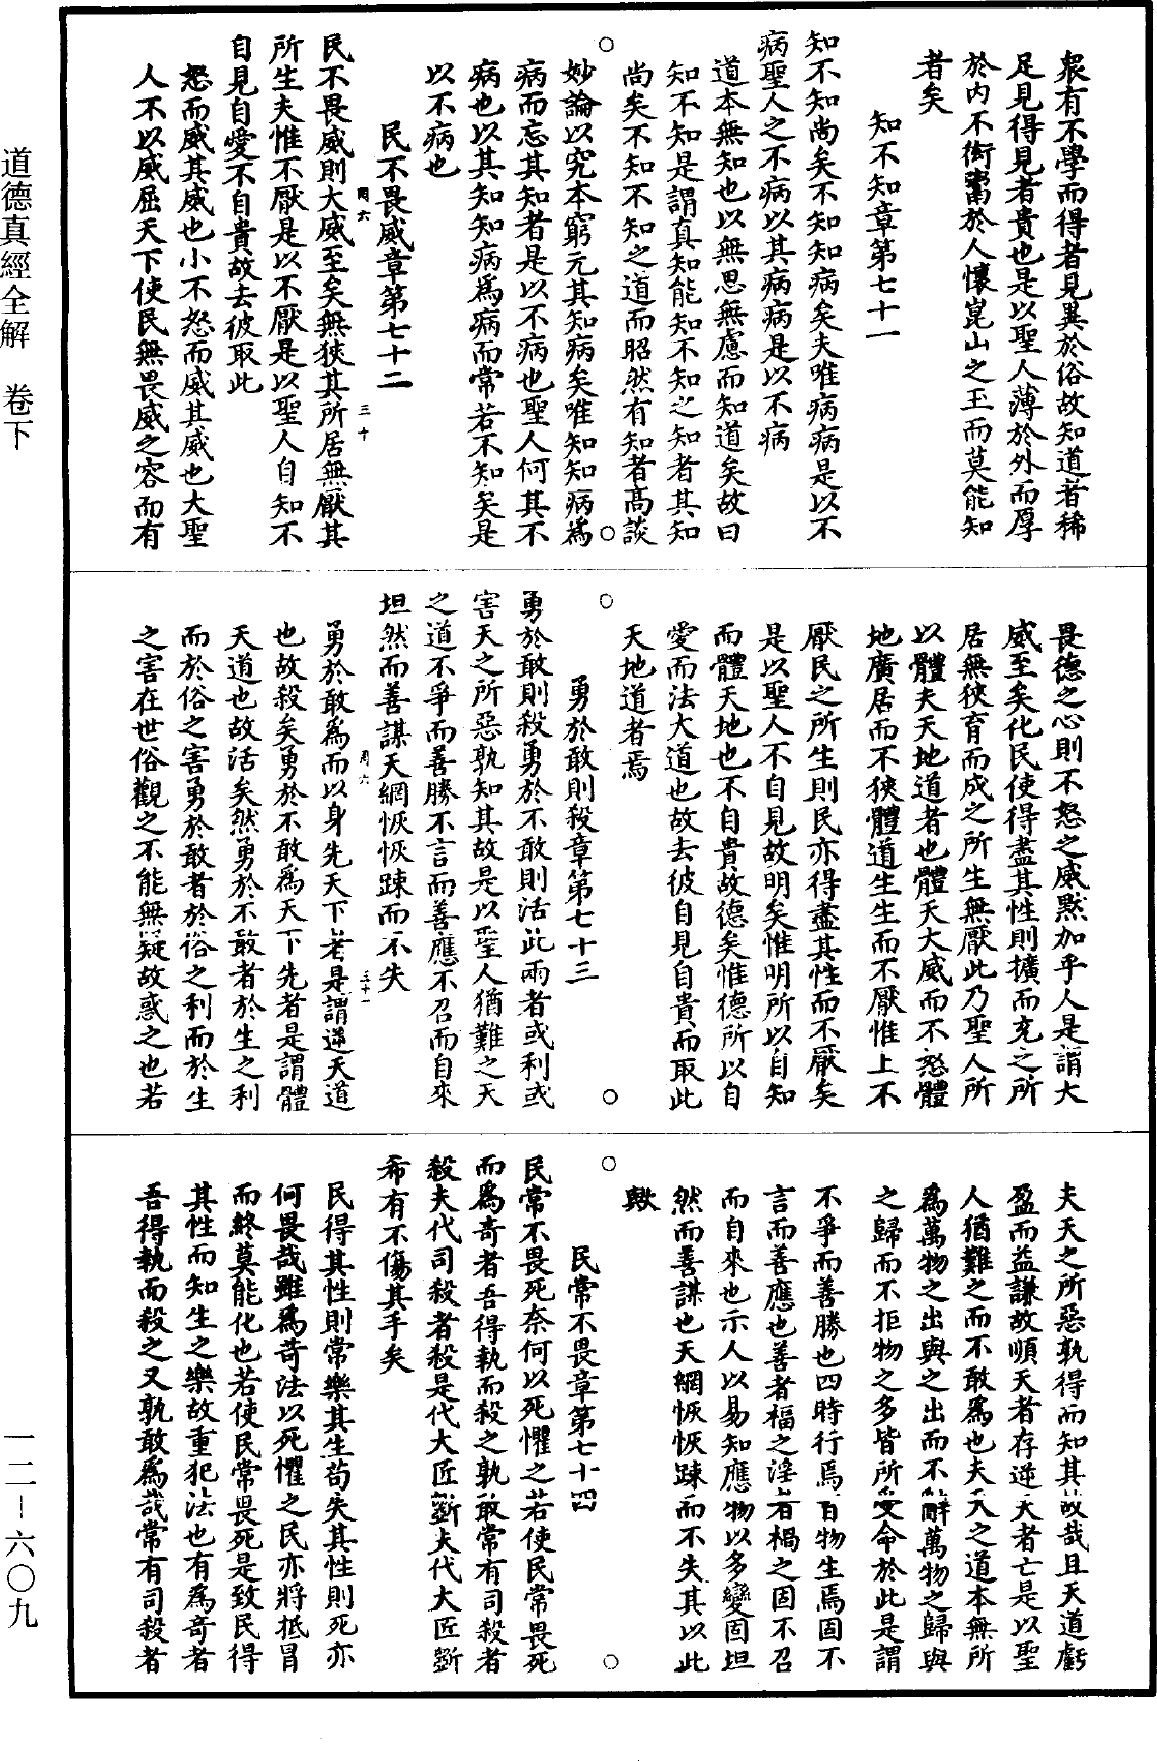 衆有不學而得者見異於俗故知道者稀
足見得見者貴也是以聖人薄於外而厚
於内不衒鬻於人懷崑山之玉而莫能知
者矣
知不知章第七十一
知不知尚矣不知知病矣夫唯病病是以不
病聖人之不病以其病病是以不病
道本無知也以無思無慮而知道矣故曰
知不知是謂真知能知不知之知者其知
尚矣不知不知之道而昭然有知者高談
妙論以究本窮元其知病矣唯知知病爲
病而忘其知者是以不病也聖人何其不
病也以其知知病爲病而常若不知矣是
以不病也
民不畏威章第七十二
民不畏威則大威至矣無狹其所居無厭其
所生夫惟不厭是以不厭是以聖人自知不
自見自愛不自貴故去彼取此
怒而威其威也小不怒而威其威也大聖
人不以威屈天下使民無畏威之容而有
畏德之心則不怒之威黙加乎人是謂大
威至矣化民使得盡其性則擴而充之所
居無狹育而成之所生無厭此乃聖人所
以體夫天地道者也體天大威而不怒體
地廣居而不狹體道生生而不厭惟上不
厭民之所生則民亦得盡其性而不厭矣
是以聖人不自見故明矣惟明所以自知
而體天地也不自貴故德矣惟德所以自
愛而法大道也故去彼自見自貴而取此
天地道者焉
勇於敢則殺章第七十三
勇於敢則殺勇於不敢則活此兩者或利或
害天之所惡孰知其故是以聖人猶難之天
之道不爭而善勝不言而善應不召而自來
坦然而善謀天網恢恢踈而不失
勇於敢爲而以身先天下者是謂逆天道
也故殺矣勇於不敢爲天下先者是謂體
天道也故活矣然勇於不敢者於生之利
而於俗之害勇於敢者於俗之利而於生
之害在世俗觀之不能無疑故惑之也若
夫天之所惡孰得而知其故哉且天道虧
盈而益謙故順天者存逆天者亡是以聖
人猶難之而不敢爲也夫天之道本無所
爲萬物之出與之出而不辭萬物之歸與
之歸而不拒物之多皆所受命於此是謂
不爭而善勝也四時行焉百物生焉固不
言而善應也善者福之淫者禍之固不召
而自來也示人以易知應物以多變固坦
然而善謀也天網恢恢踈而不失其以此
歟
民常不畏章第七十四
民常不畏死奈何以死懼之若使民常畏死
而爲奇者吾得執而殺之孰敢常有司殺者
殺夫代司殺者殺是代大匠斲夫代大匠斲
希有不傷其手矣
民得其性則常樂其生苟失其性則死亦
何畏哉雖爲苛法以死懼之民亦將抵冒
而終莫能化也若使民常畏死是致民得
其性而知生之樂故重犯法也有爲奇者
吾得執而殺之又孰敢爲哉常有司殺者
道德真經全解　卷下
一二－六〇九